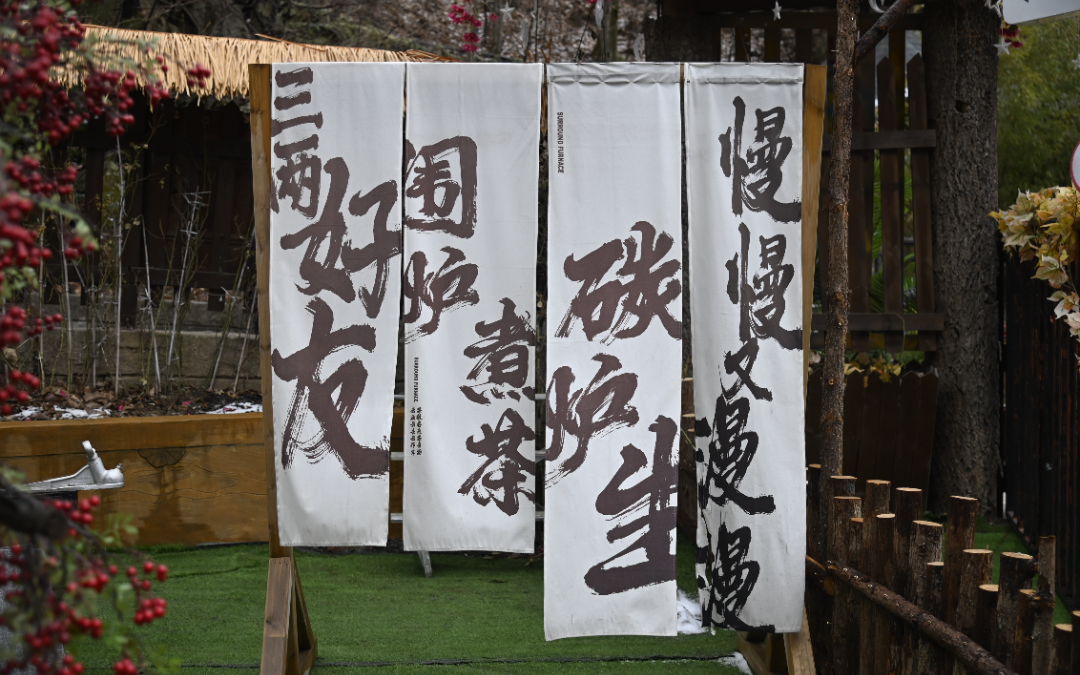 三两好友
围炉煮茶
SURROUND FURNACE
SURROUND FURNACE
碳炉生
慢慢又漫漫